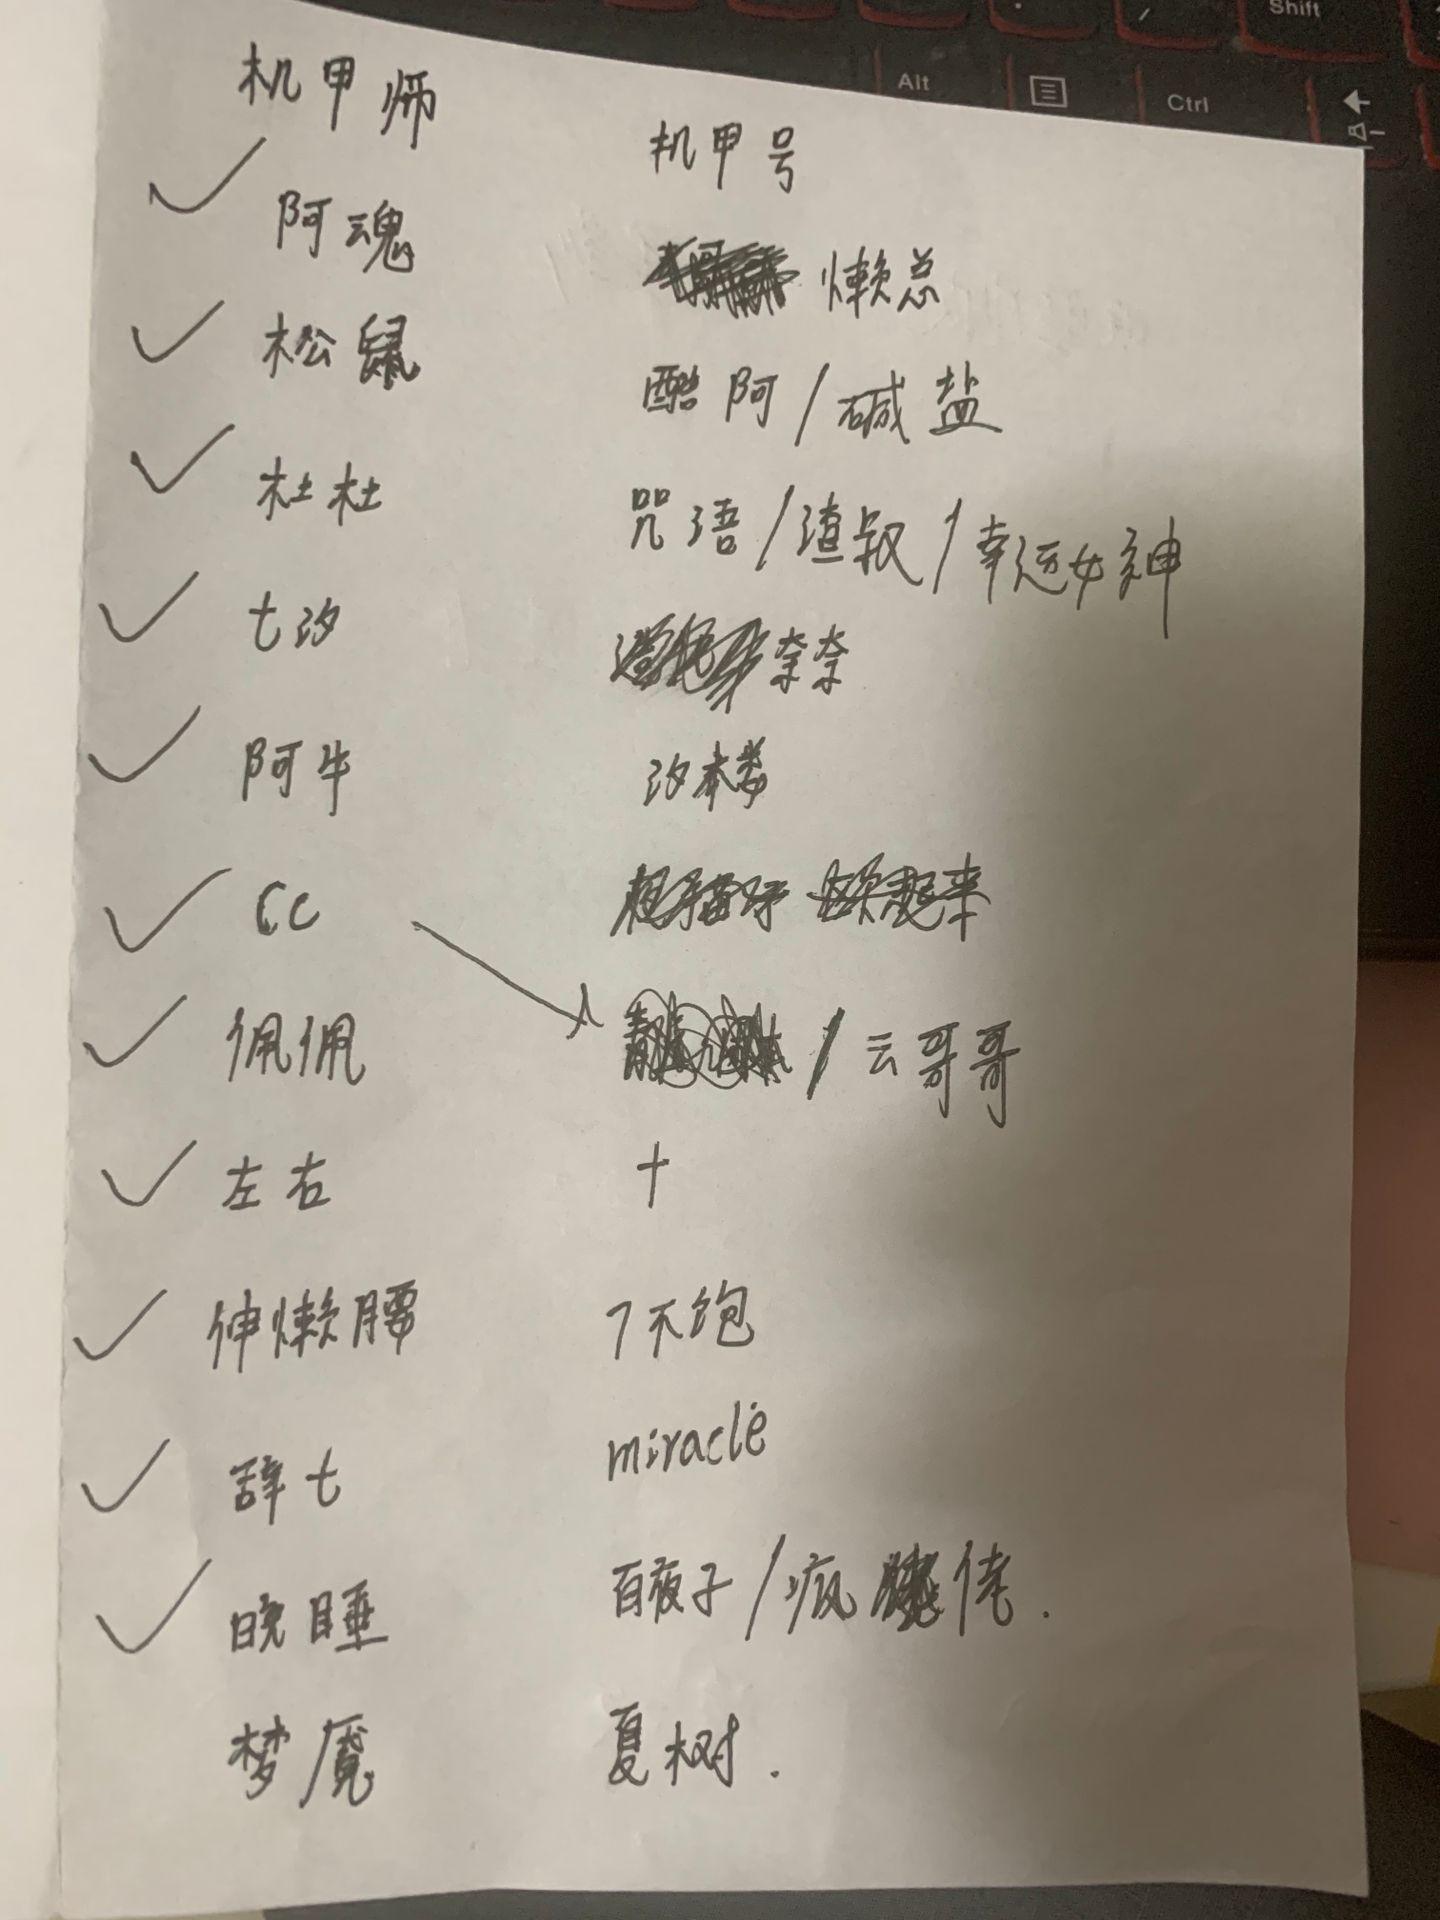 Shift
Alt
Ctrl
机甲师 机甲号
阿魂 懒总
松鼠 酷阿/碱盐
杜杜 咒语/渣叔/幸运女神
七汐 奈奈
阿牛 汐楼
CC
佩佩 /云哥哥
左右 十
伸懒腰 7不饱
辞七 miracle
晚睡 百夜子/疯 佬.
梦魇 夏树.